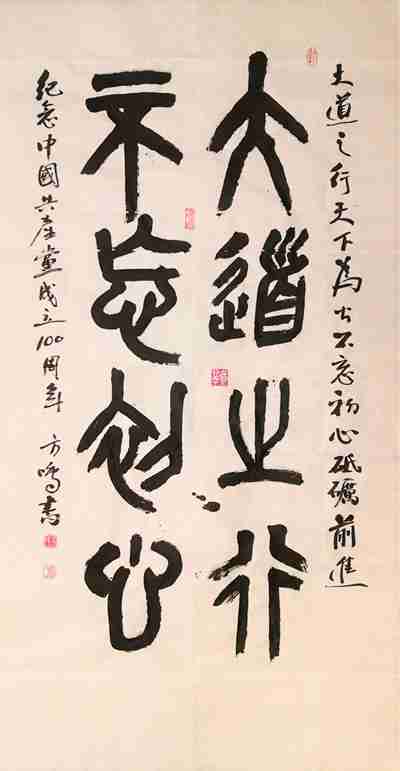 大道之行天下為公不忘初心砥礪前進
大道之行
不忘初心
紀念中國共產黨成立100周年 方鳴書